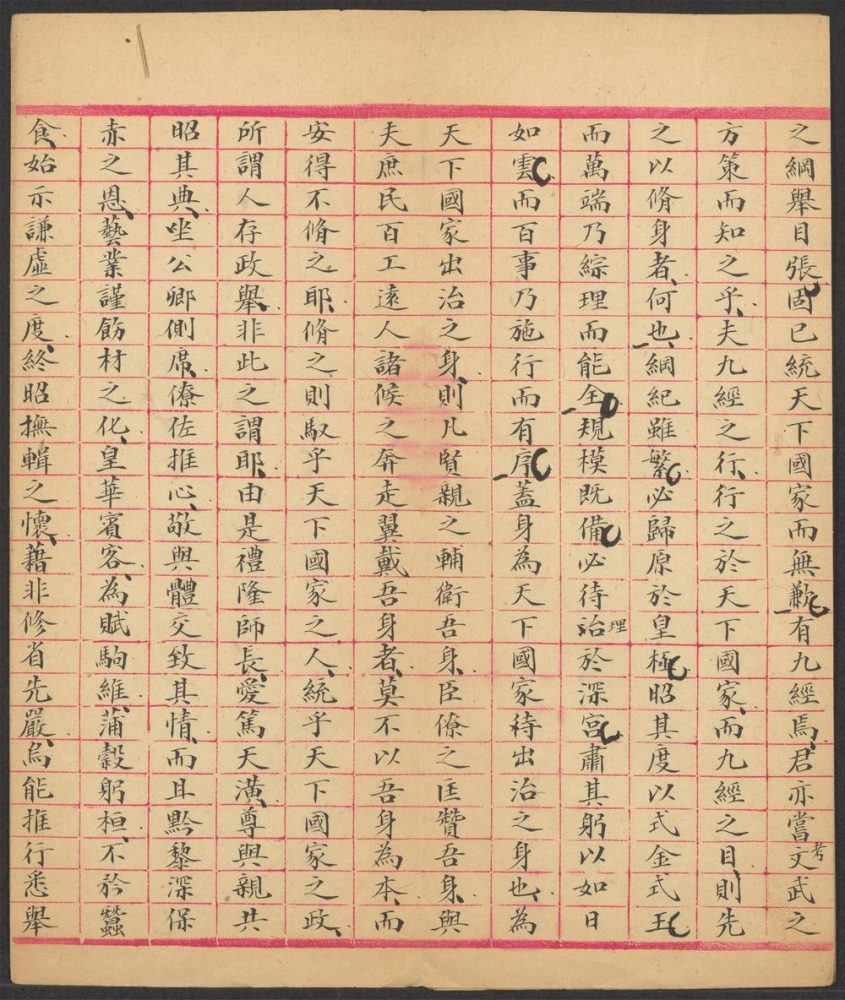 之綱舉目張固已統天下國家而無歉有九經焉君亦嘗考文武之
方策而知之乎夫九經之行行之於天下國家而九經之目則先
之以脩身者何也綱紀雖繁必歸原於皇極昭其度以式金式玉
而萬端乃綜理而能全規模既備必待治理於深宮肅其躬以如日
如雲而百事乃施行而有序蓋身為天下國家待出治之身也為
天下國家出治之身則凡賢親之輔衛吾身臣僚之匡贊吾身與
夫庶民百工遠人諸侯之奔走翼戴吾身者莫不以吾身為本而
安得不脩之耶脩之則馭乎天下國家之人統乎天下國家之政
所謂人存政舉非此之謂耶由是禮隆師長愛篤天潢尊與親共
昭其典坐公卿側席僚佐推心敬與體交致其情而且黔黎深保
赤之恩藝業謹飭材之化皇華賓客為賦駒維蒲穀躬桓不矜蠶
食始示謙虛之度終昭撫輯之懷藉非修省先嚴烏能推行悉舉